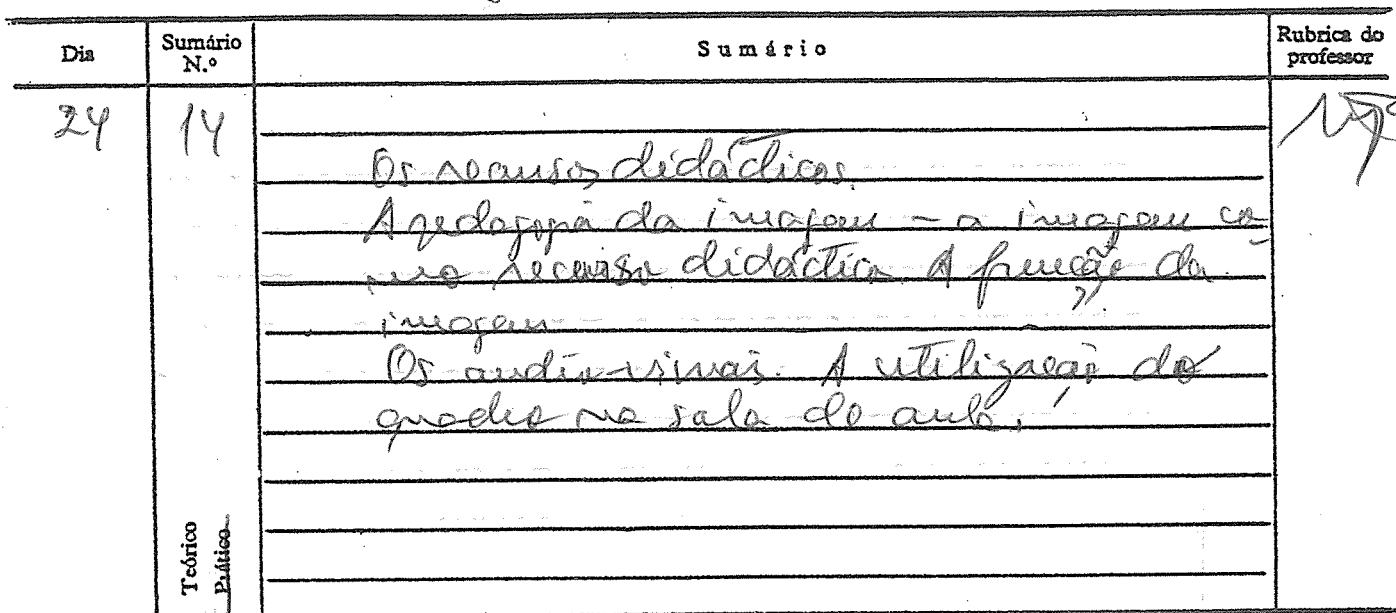 Dia
Sumário N.º
Sumário
Rubrica do professor
24
14
Os recursos didácticos.
A pedagogia da imagem - a imagem co-
mo recurso didáctico. A função da
imagem
Os audio-visuais. A utilização do
quadro na sala de aula.
Teórico
Prático